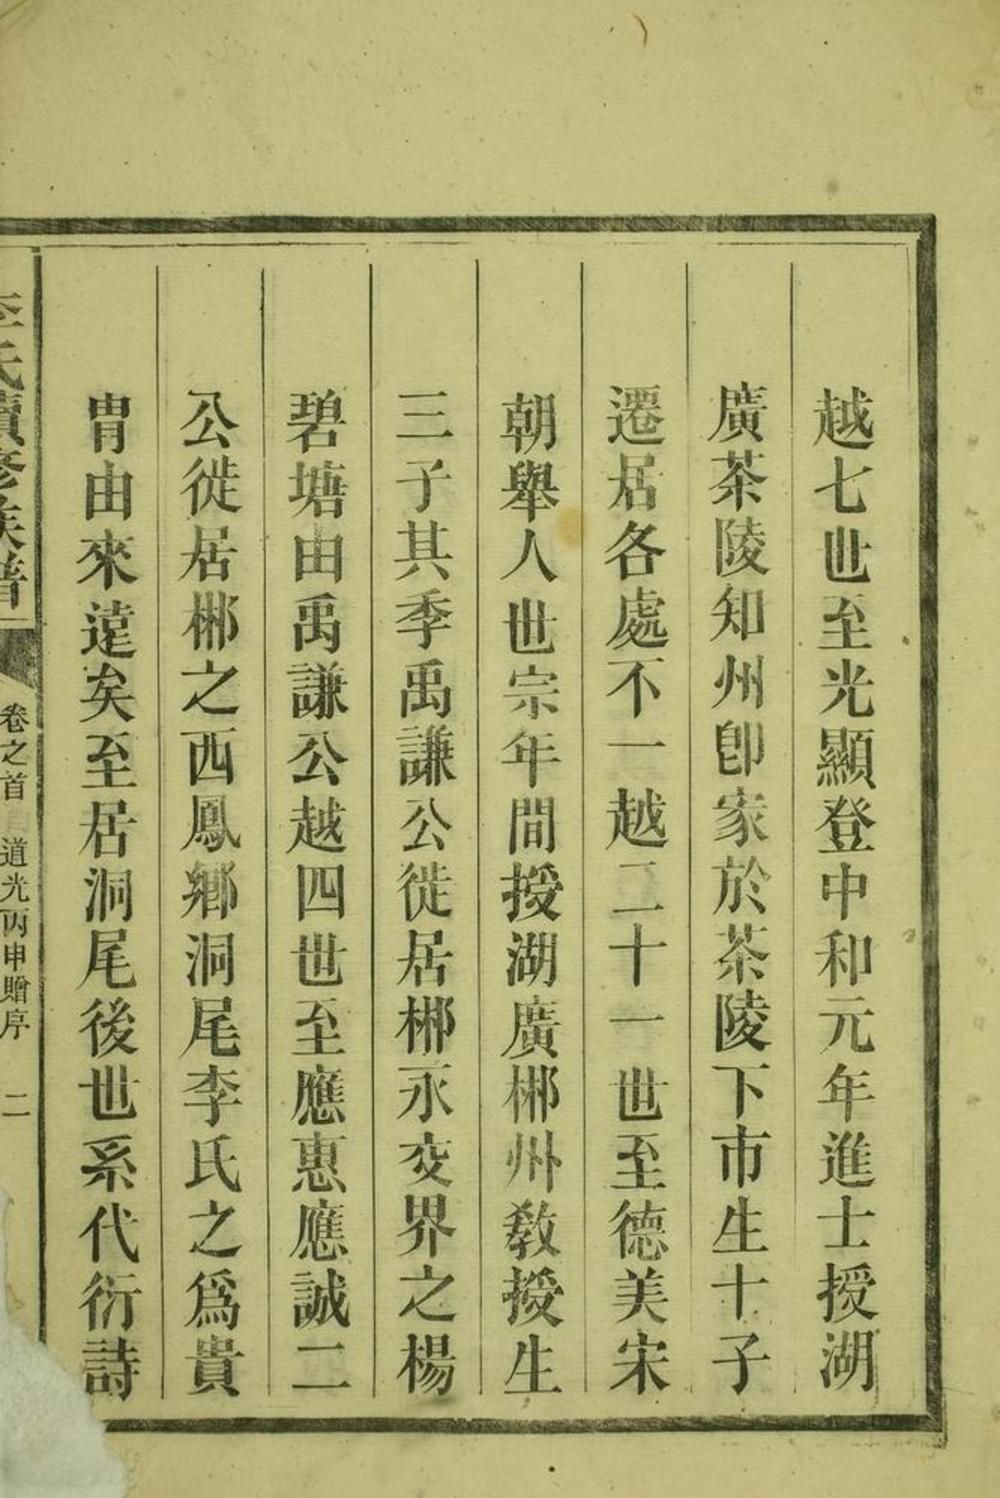 越七世至光顯登中和元年進士授湖
廣茶陵知州卽家於茶陵下市生十子
遷居各處不一越二十一世至德美宋
朝舉人世宗年間授湖廣郴州教授生
三子其季禹謙公徙居郴永交界之楊
碧塘由禹謙公越四世至應惠應誠二
公徙居郴之西鳳鄉洞尾李氏之爲貴
胄由來遠矣至居洞尾後世系代衍詩
李氏續修族譜
卷之首
道光丙申贈序
二